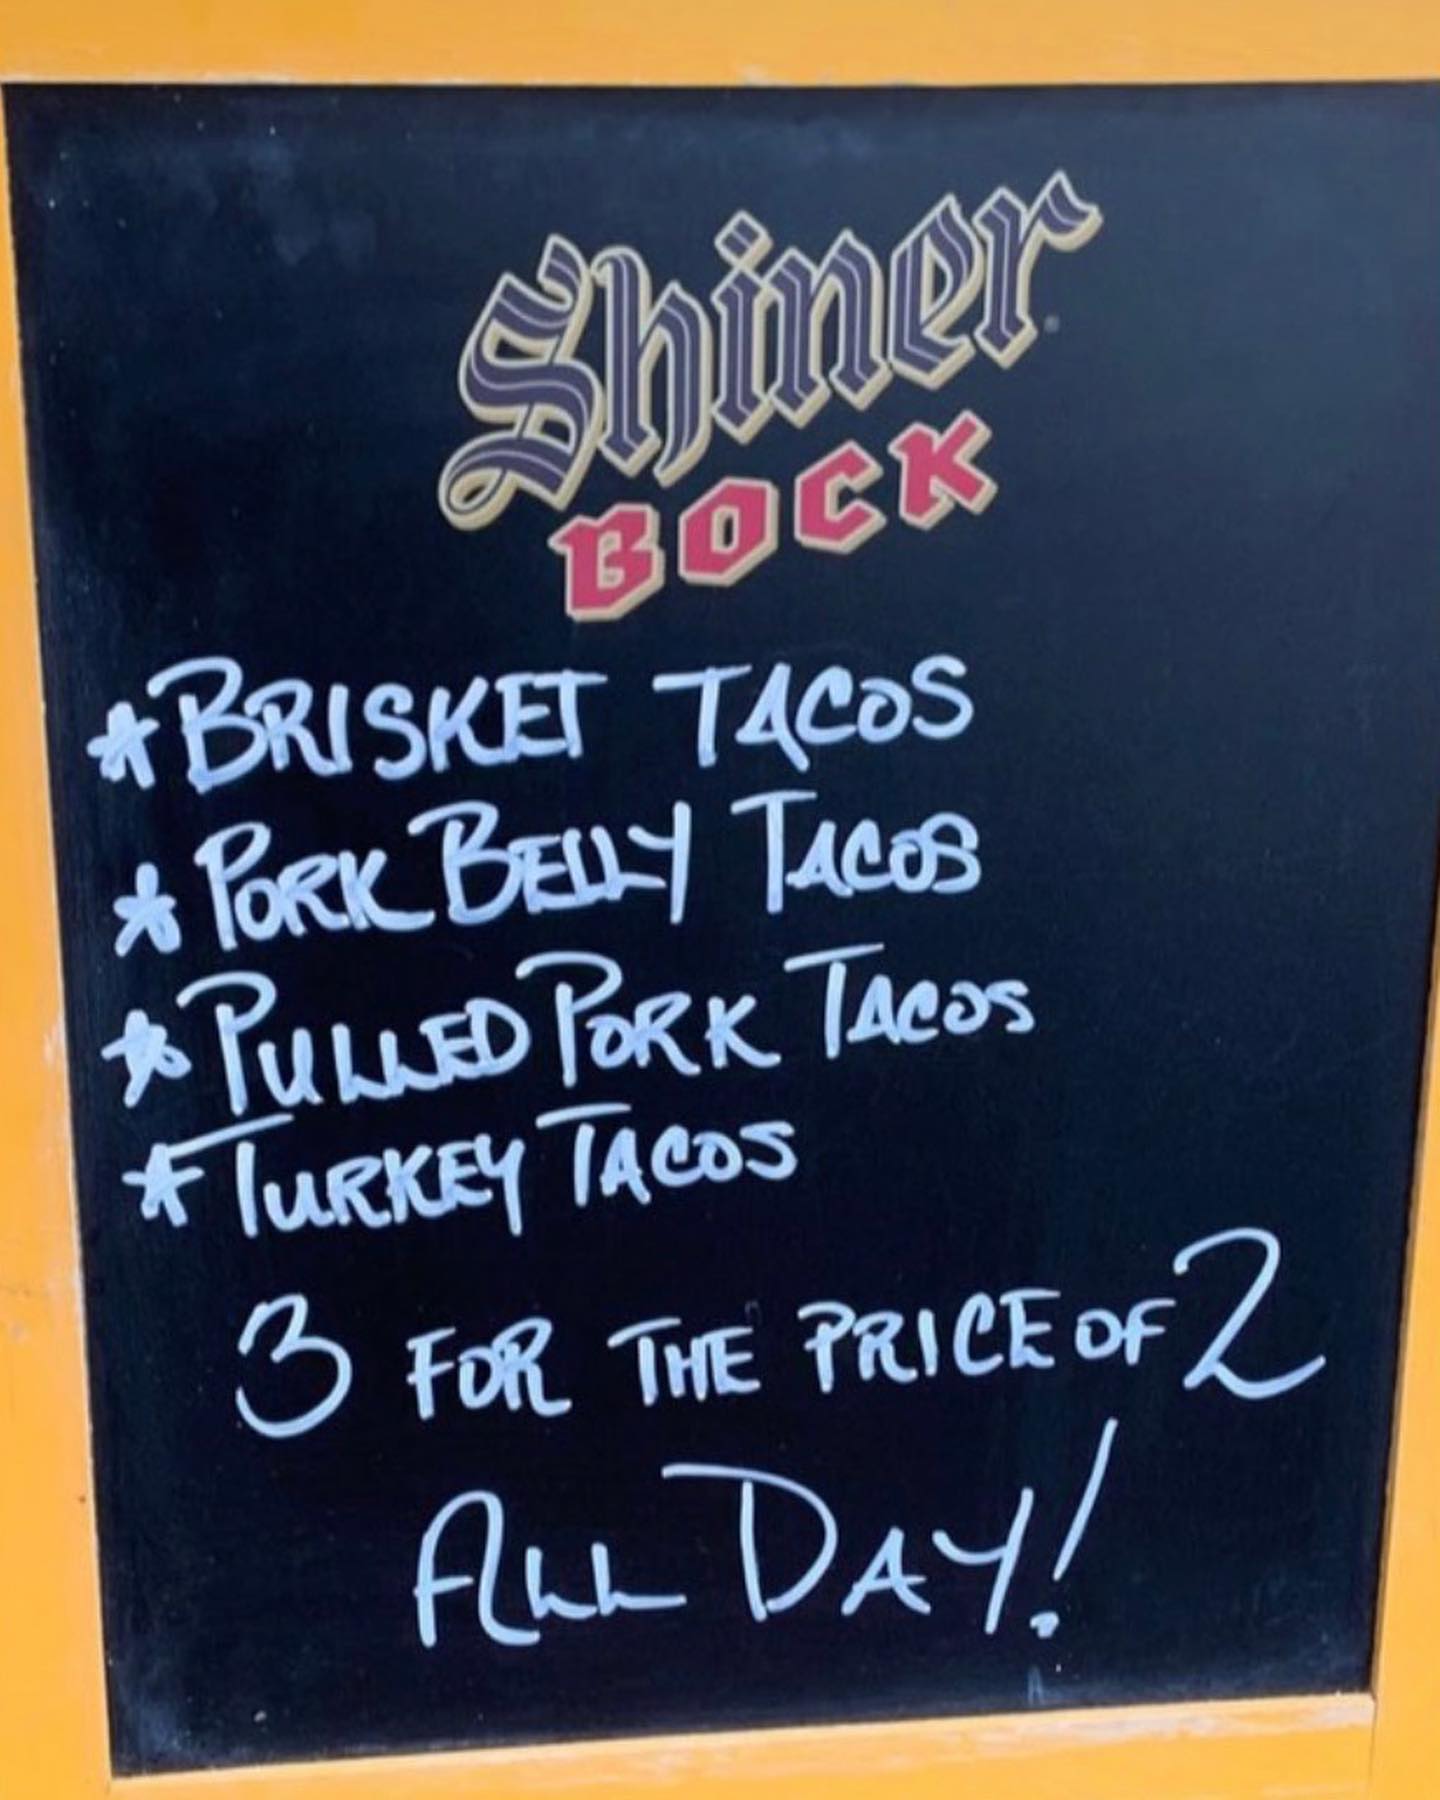 Shiner
BOCK
*BRISKET TACOS
* PORK BELLY TACOS
* PULLED PORK TACOS
* TURKEY TACOS
3 FOR THE PRICE OF 2
ALL DAY!